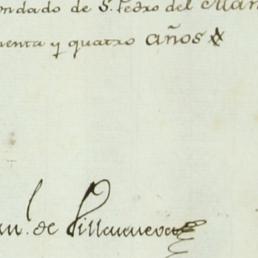 ondado de S. Pedro del Mar
uenta y quatro años
an.l de Villanueva